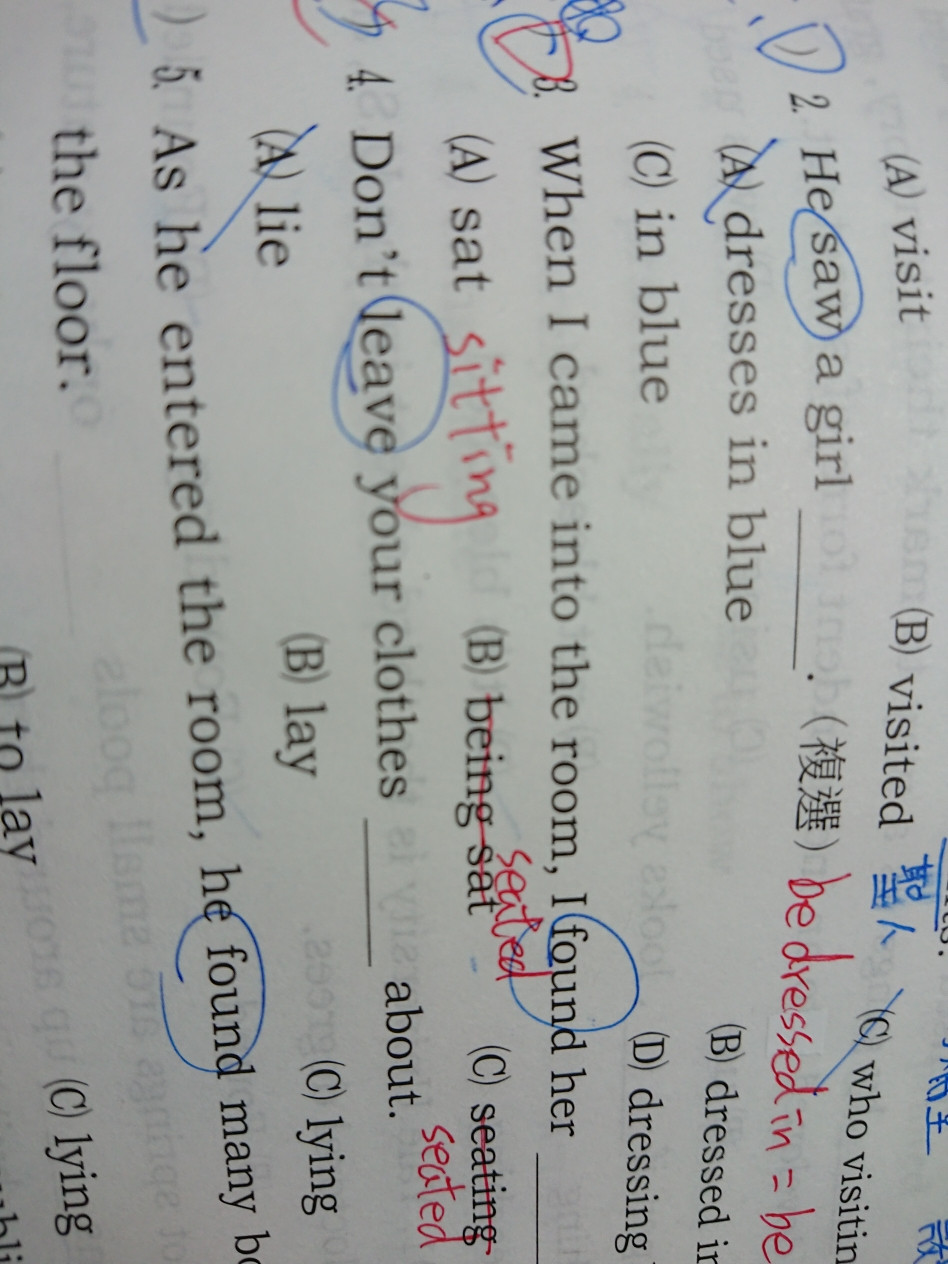 (A) visit (B) visited (C) who visitin
2. He saw a girl ______. (複選) be dressed in = be
(A) dresses in blue (B) dressed in
(C) in blue (D) dressing
3. When I came into the room, I found her ______
(A) sat sitting (B) being sat seated (C) seating seated
4. Don't leave your clothes ______ about.
(A) lie (B) lay (C) lying
) 5. As he entered the room, he found many bo
the floor.
(B) to lay (C) lying